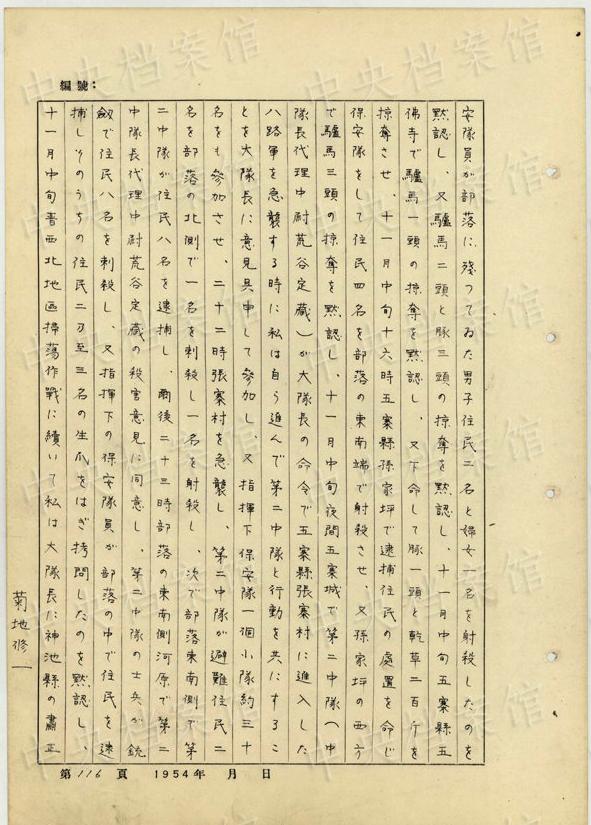 編號:
安隊員が部落に残つてゐた男子住民二名と婦女一名を射殺したのを
黙認し、又驢馬二頭と豚三頭の掠奪を黙認し、十一月中旬五寨縣五
佛寺で驢馬一頭の掠奪を黙認し、又下命して豚一頭と乾草二百斤を
掠奪させ、十一月中旬十六時五寨縣孫家坪で逮捕住民の處置を命じ
保安隊をして住民四名を部落の東南端で射殺させ、又孫家坪の西方
で驢馬三頭の掠奪を黙認し、十一月中旬夜間五寨城で第二中隊(中
隊長代理中尉荒谷定藏)が大隊長の命令で五寨縣張寨村に進入した
八路軍を急襲する時に私は自う進んで第二中隊と行動を共にするこ
とを大隊長に意見具申して参加し、又指揮下保安隊一個小隊約三十
名をも参加させ、二十二時張寨村を急襲し、第二中隊が避難住民二
名を部落の北側で一名を刺殺し一名を射殺し、次で部落東南側で第
二中隊が住民八名を逮捕し、爾後二十三時部落の東南側河原で第二
中隊長代理中尉荒谷定藏の殺害意見に同意し、第二中隊の士兵が銃
劔で住民八名を刺殺し、又指揮下の保安隊員が部落の中で住民を逮
捕しそのうちの住民二乃至三名の生爪をはぎ拷問したのを黙認し、
十一月中旬晋西北地区掃蕩作戰に續いて私は大隊長に神池縣の肅正
菊地修一
第116頁 1954年 月 日
中央档案馆